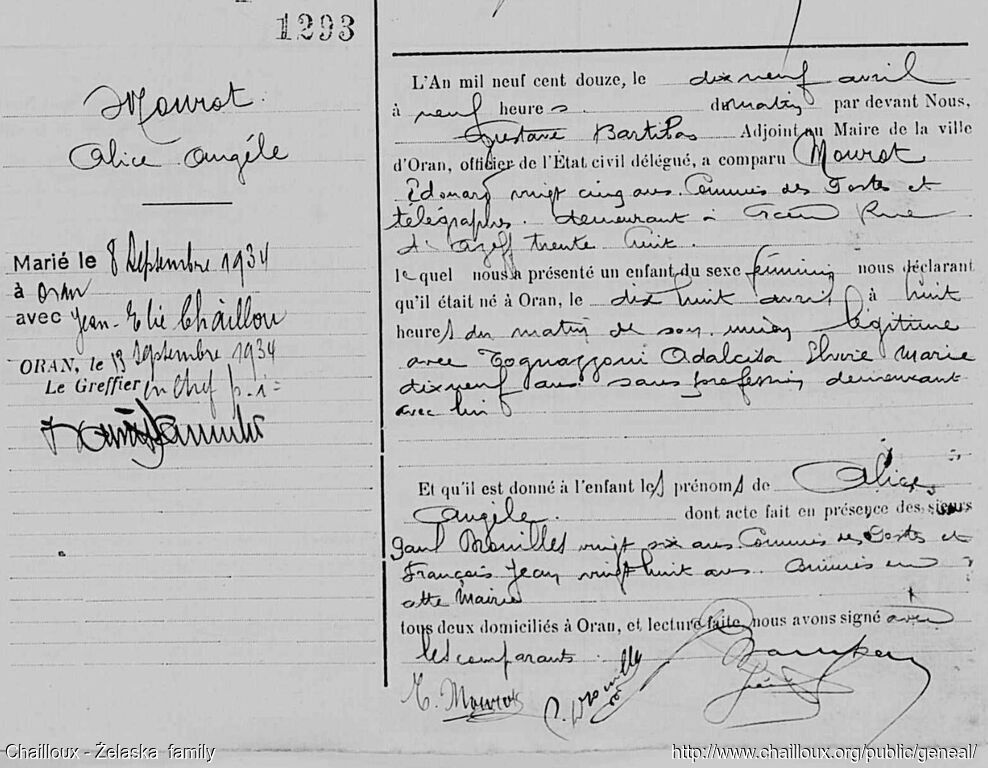 1293
Mourot
Alice Angéle
Marié le 8 Septembre 1934
à Oran
avec Jean-Elie Chaillou
ORAN, le 13 Septembre 1934
Le Greffier en Chef p.i=
L'An mil neuf cent douze, le dix neuf avril
à neuf heures du matin par devant Nous,
Gustave Adjoint au Maire de la ville
d'Oran, officier de l'État civil délégué, a comparu Mourot
Edouard vingt cinq ans. Commis des Postes et
télégraphes. demeurant à Oran Rue
trente huit.
lequel nous a présenté un enfant du sexe féminin nous déclarant
qu'il était né à Oran, le dix huit avril à huit
heures du matin de son union légitime
avec Tognazzoni Adalcisa Marie
dix neuf ans sans profession demeurant
avec lui
Et qu'il est donné à l'enfant les prénoms de Alice
Angèle. dont acte fait en présence des sieurs
Paul vingt six ans Commis des Postes et
François Jean vingt huit ans. en
cette Mairie
tous deux domiciliés à Oran, et lecture faite, nous avons signé avec
les comparants.
E. Mourot
Chailloux - Żelaska family
http://www.chailloux.org/public/geneal/